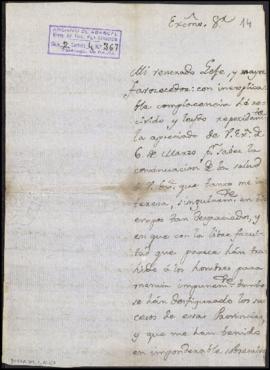 Excmo. Sr.
14
Mi venerado Jefe, y mayor
favorecedor: con inexplica
ble complacencia hé re
civido y leydo repetidamte
la apreciada de V.E. de
6. de Marzo pr saber la
continuacion de la salud
de V.E. que tanto me in
teresa, singularmte en
tiempos tan desgraciados, y
en que con la libre facul
tad que parece han tra
hido á los hombres para
mentir impunemte
se han desfigurado los su
cesos de estas Provincias,
y que me han tenido
en imponderable